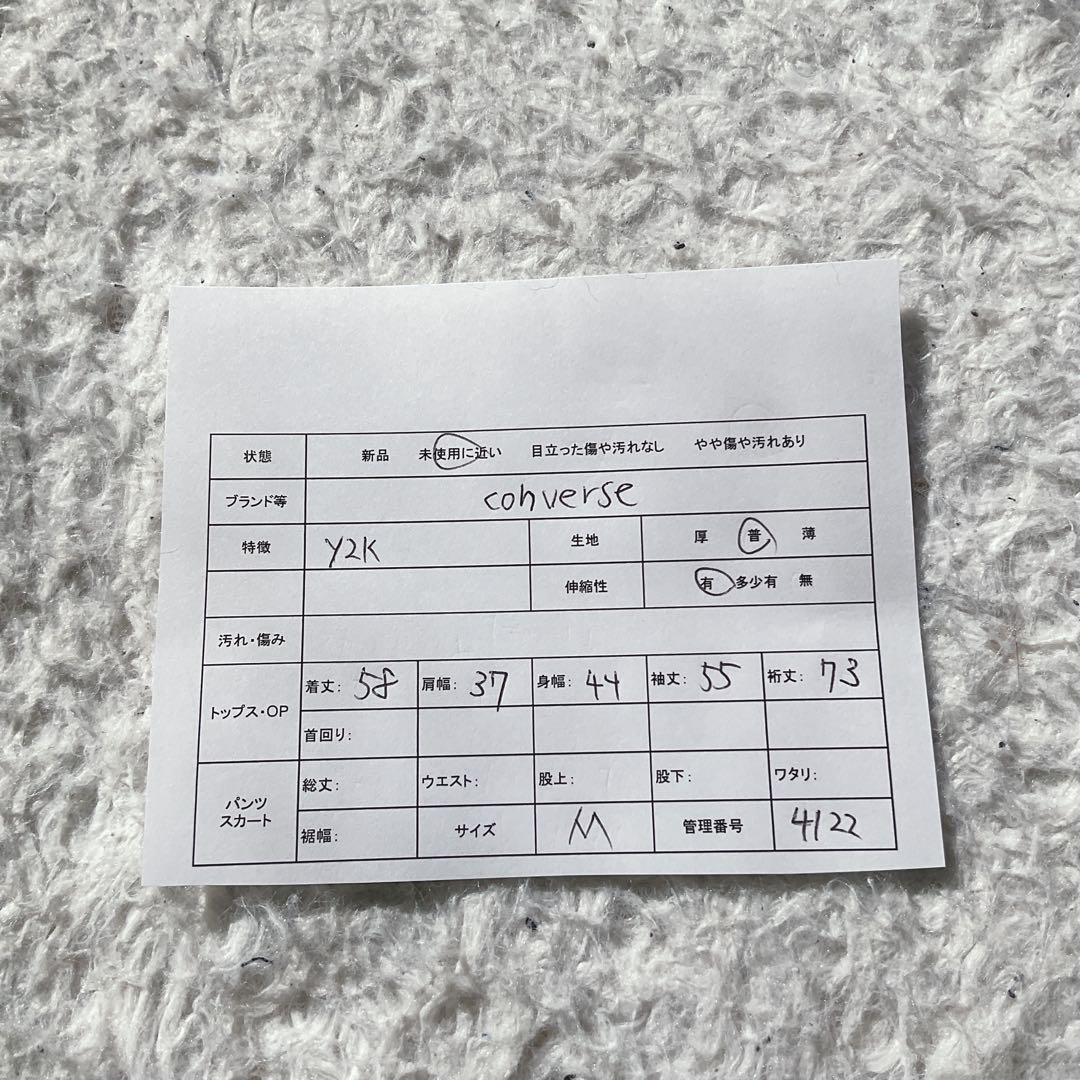 状態 新品 未使用に近い 目立った傷や汚れなし やや傷や汚れあり
ブランド等 converse
特徴 Y2K 生地 厚 普 薄
伸縮性 有 多少有 無
汚れ・傷み
トップス・OP 着丈: 58 肩幅: 37 身幅: 44 袖丈: 55 裄丈: 73
首回り:
パンツ スカート 総丈: ウエスト: 股上: 股下: ワタリ:
裾幅: サイズ M 管理番号 4122